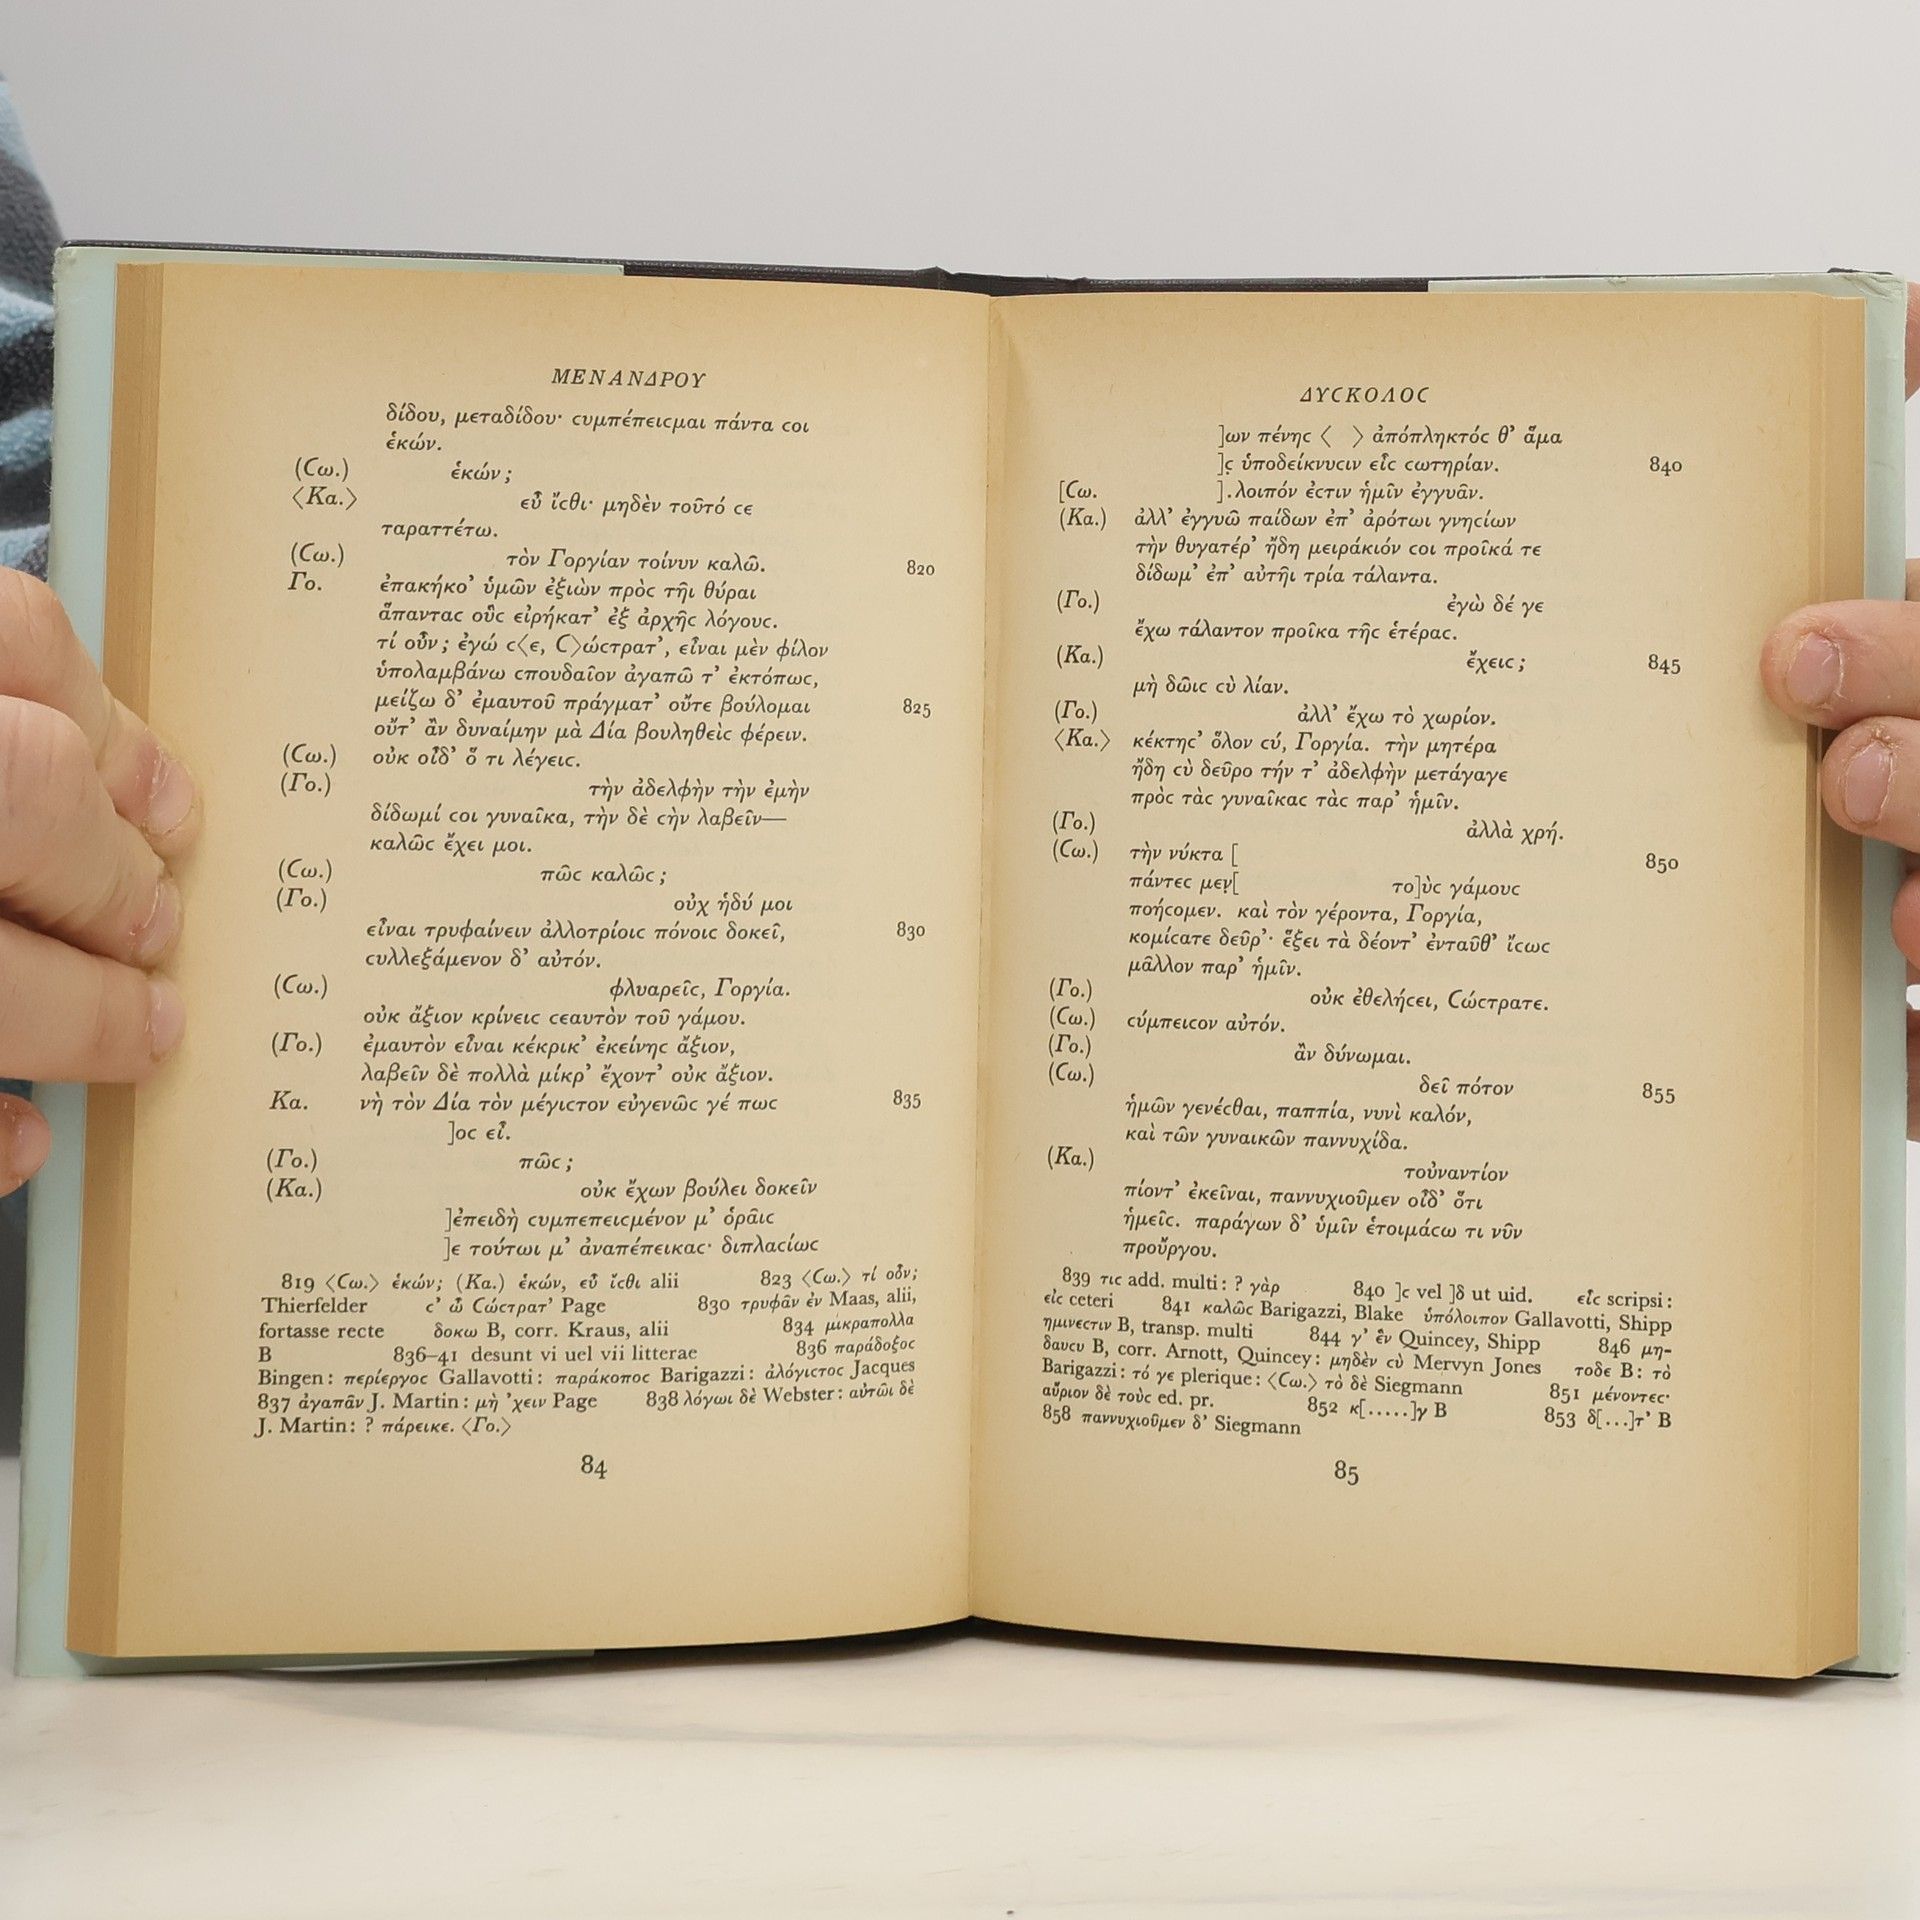 ΜΕΝΑΝΔΡΟΥ
δίδου, μεταδίδου· ϲυμπέπειϲμαι πάντα ϲοι
ἑκών.
(Ϲω.) ἑκών;
〈Κα.〉 εὖ ἴϲθι· μηδὲν τοῦτό ϲε
ταραττέτω.
(Ϲω.) τὸν Γοργίαν τοίνυν καλῶ. 820
Γο. ἐπακήκο' ὑμῶν ἐξιὼν πρὸϲ τῆι θύραι
ἅπανταϲ οὓϲ εἰρήκατ' ἐξ ἀρχῆϲ λόγουϲ.
τί οὖν; ἐγώ ϲ〈ε, Ϲ〉ώϲτρατ', εἶναι μὲν φίλον
ὑπολαμβάνω ϲπουδαῖον ἀγαπῶ τ' ἐκτόπωϲ,
μείζω δ' ἐμαυτοῦ πράγματ' οὔτε βούλομαι 825
οὔτ' ἂν δυναίμην μὰ Δία βουληθεὶϲ φέρειν.
(Ϲω.) οὐκ οἶδ' ὅ τι λέγειϲ.
(Γο.) τὴν ἀδελφὴν τὴν ἐμὴν
δίδωμί ϲοι γυναῖκα, τὴν δὲ ϲὴν λαβεῖν—
καλῶϲ ἔχει μοι.
(Ϲω.) πῶϲ καλῶϲ;
(Γο.) οὐχ ἡδύ μοι
εἶναι τρυφαίνειν ἀλλοτρίοιϲ πόνοιϲ δοκεῖ, 830
ϲυλλεξάμενον δ' αὐτόν.
(Ϲω.) φλυαρεῖϲ, Γοργία.
οὐκ ἄξιον κρίνειϲ ϲεαυτὸν τοῦ γάμου.
(Γο.) ἐμαυτὸν εἶναι κέκρικ' ἐκείνηϲ ἄξιον,
λαβεῖν δὲ πολλὰ μίκρ' ἔχοντ' οὐκ ἄξιον.
Κα. νὴ τὸν Δία τὸν μέγιϲτον εὐγενῶϲ γέ πωϲ 835
]οϲ εἶ.
(Γο.) πῶϲ;
(Κα.) οὐκ ἔχων βούλει δοκεῖν
]ἐπειδὴ ϲυμπεπειϲμένον μ' ὁρᾶιϲ
]ε τούτωι μ' ἀναπέπεικαϲ· διπλαϲίωϲ
819 〈Ϲω.〉 ἑκών; (Κα.) ἑκών, εὖ ἴϲθι alii 823 〈Ϲω.〉 τί οὖν;
Thierfelder ϲ' ὦ Ϲώϲτρατ' Page 830 τρυφᾶν ἐν Maas, alii,
fortasse recte δοκω B, corr. Kraus, alii 834 μικραπολλα
B 836–41 desunt vi uel vii litterae 836 παράδοξοϲ
Bingen: περίεργοϲ Gallavotti: παράκοποϲ Barigazzi: ἀλόγιϲτοϲ Jacques
837 ἀγαπᾶν J. Martin: μὴ 'χειν Page 838 λόγωι δὲ Webster: αὐτῶι δὲ
J. Martin: ? πάρεικε. 〈Γο.〉
84
ΔΥϹΚΟΛΟϹ
]ων πένηϲ 〈 〉 ἀπόπληκτόϲ θ' ἅμα
]ϲ̣ ὑποδείκνυϲιν εἷϲ ϲωτηρίαν. 840
[Ϲω. ].λοιπόν ἐϲτιν ἡμῖν ἐγγυᾶν.
(Κα.) ἀλλ' ἐγγυῶ παίδων ἐπ' ἀρότωι γνηϲίων
τὴν θυγατέρ' ἤδη μειράκιόν ϲοι προῖκά τε
δίδωμ' ἐπ' αὐτῆι τρία τάλαντα.
(Γο.) ἐγὼ δέ γε
ἔχω τάλαντον προῖκα τῆϲ ἑτέραϲ.
(Κα.) ἔχειϲ; 845
μὴ δῶιϲ ϲὺ λίαν.
(Γο.) ἀλλ' ἔχω τὸ χωρίον.
〈Κα.〉 κέκτηϲ' ὅλον ϲύ, Γοργία. τὴν μητέρα
ἤδη ϲὺ δεῦρο τήν τ' ἀδελφὴν μετάγαγε
πρὸϲ τὰϲ γυναῖκαϲ τὰϲ παρ' ἡμῖν.
(Γο.) ἀλλὰ χρή.
(Ϲω.) τὴν νύκτα [ 850
πάντεϲ μεν̣[ το]ὺϲ γάμουϲ
ποήϲομεν. καὶ τὸν γέροντα, Γοργία,
κομίϲατε δεῦρ'· ἕξει τὰ δέοντ' ἐνταῦθ' ἴϲωϲ
μᾶλλον παρ' ἡμῖν.
(Γο.) οὐκ ἐθελήϲει, Ϲώϲτρατε.
(Ϲω.) ϲύμπειϲον αὐτόν.
(Γο.) ἂν δύνωμαι.
(Ϲω.) δεῖ πότον 855
ἡμῶν γενέϲθαι, παππία, νυνὶ καλόν,
καὶ τῶν γυναικῶν παννυχίδα.
(Κα.) τοὐναντίον
πίοντ' ἐκεῖναι, παννυχιοῦμεν οἶδ' ὅτι
ἡμεῖϲ. παράγων δ' ὑμῖν ἑτοιμάϲω τι νῦν
προὔργου.
839 τιϲ add. multi: ? γὰρ 840 ]ϲ vel ]δ ut uid. εἷϲ scripsi:
εἰϲ ceteri 841 καλῶϲ Barigazzi, Blake ὑπόλοιπον Gallavotti, Shipp
ημινεϲτιν B, transp. multi 844 γ' ἓν Quincey, Shipp 846 μη-
δαυϲυ B, corr. Arnott, Quincey: μηδὲν ϲὺ Mervyn Jones τοδε B: τὸ
Barigazzi: τό γε plerique: 〈Ϲω.〉 τὸ δὲ Siegmann 851 μένοντεϲ·
αὔριον δὲ τοὺϲ ed. pr. 852 κ[.....]γ B 853 δ[...]τ' B
858 παννυχιοῦμεν δ' Siegmann
85